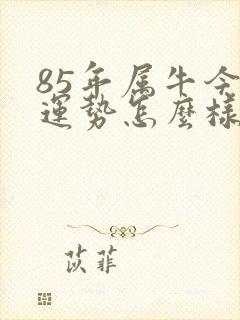 85年属牛今
運势怎麼様
苡菲